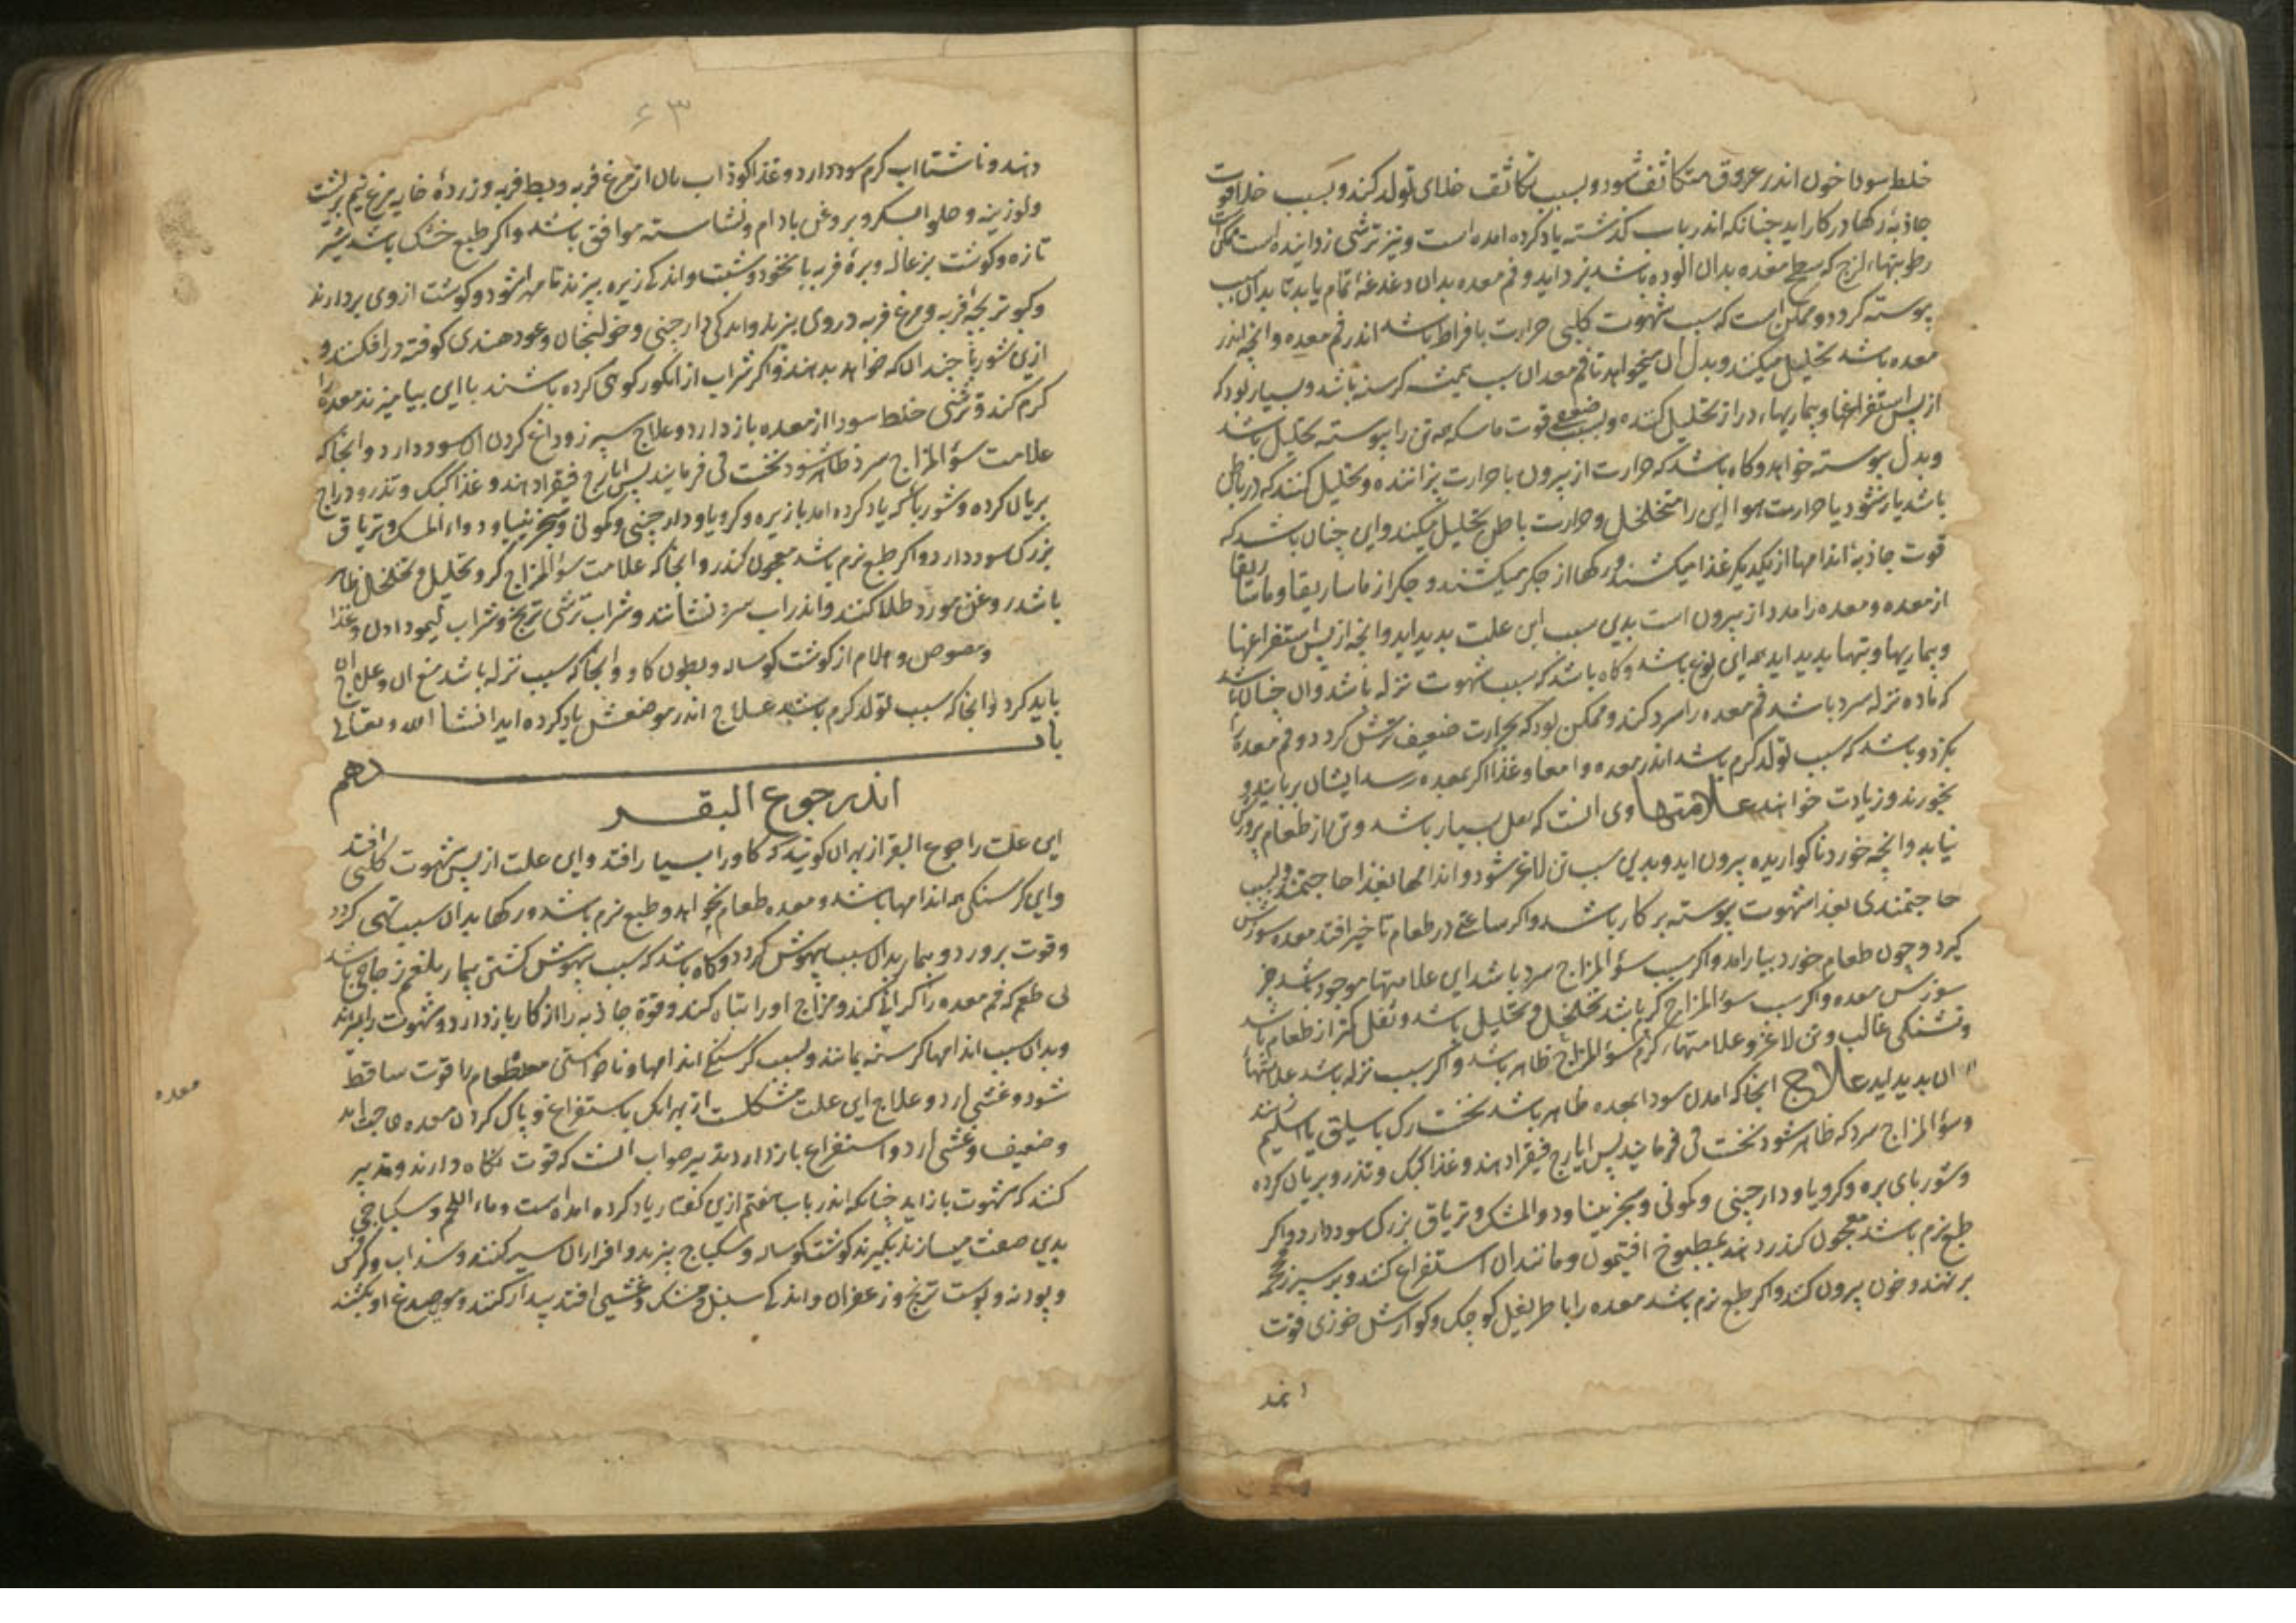 خلط سودا خون اندر عروق متکاثف شود و بسبب تکاثف خلای تولد کند و بسبب خلا قوت
جاذبهٔ رکها در کار اید چنانکه اندر باب کذشته یاد کرده امده است و نیز ترشی زداینده است ممکن است
رطوبتهاء لزج که سطح معده بدان الوده باشد بزداید و فم معده بدان دغدغهٔ تمام یابد تا بدان سبب
پیوسته کردد و ممکن است که سبب شهوت کلبی حرارت بافراط باشد اندر فم معده و انچه اندر
معده باشد تحلیل میکند و بدل ان میخواهد تا فم معده ان سبب همیشه کرسنه باشد و بسیار بود که
از پس استفراغها و بیماریهاء دراز تحلیل کننده و بسبب ضعیفی قوت ماسکه همه تن را پیوسته تحلیل باشد
و بدل پیوسته خواهد و کاه باشد که حرارت از بیرون با حرارت پزاننده و تحلیل کنند که در باطن
باشد یار شود یا حرارت هوا این را متخلخل و حرارت باطن تحلیل میکند و این چنان باشد که
قوت جاذبهٔ اندامها از یکدیکر غذا میکشند و رکها از جکر میکشند و جکر از ماساریقا و ماساریقا
از معده و معده را مدد از بیرون است بدین سبب این علت بدید اید و انچه از پس استفراغها
و بیماریها و تبها بدید اید همه این نوع باشد و کاه باشد که سبب شهوت نزله باشد و ان چنان باشد
که ماده نزله سرد باشد فم معده را سرد کند و ممکن بود که بحرارت ضعیف ترش کردد و فم معده را
بکزد و باشد که سبب تولد کرم باشد اندر معده و امعا و غذا اکر بمعده رسد ایشان بربایند و
بخورند و زیادت خواهند علامتها وی انست که ثفل بسیار باشد و تن از طعام پرورش
نیابد و انچه خورد ناکواریده بیرون اید و بدین سبب تن لاغر شود و اندامها بغذا حاجتمند و بسبب
حاجتمندی بغذا شهوت پیوسته بر کار باشد و اکر ساعتی در طعام تاخیر افتد معده سوزش
کیرد و چون طعام خورد بیارامد و اکر سبب سؤ المزاج سرد باشد این علامتها موجود باشد جز
سوزش معده و اکر سبب سؤ المزاج کرم باشد تخلخل و تحلیل باشد و ثفل کمتر از طعام باشد
و تشنکی غالب و تن لاغر و علامتهاء کرم سؤ المزاج ظاهر باشد و اکر سبب نزله باشد علامتها
ان بدید اید علاج انجا که امدن سودا بمعده ظاهر باشد نخست رک باسلیق یا اسلیم زنند
و سؤ المزاج سرد که ظاهر شود نخست قی فرمایند پس ایارج فیقرا دهند و غذا کبک و تذرو بریان کرده
و شوربای بره و کرویا و دارچینی و کمونی و سجزینیا و دوالمشک و تریاق بزرک سود دارد و اکر
طبع نرم باشد معجون کندر دهند بمطبوخ افتیمون و مانند ان استفراغ کنند و بر سپرز محجمه
بر نهند و خون بیرون کنند و اکر طبع نرم باشد معده را با طریفل کوچک و کوارش خوزی قوت
دهند
۶۳
دهند و ناشتا اب کرم سود دارد و غذا کوذاب بان از مرغ فربه و بط فربه و زردهٔ خایه مرغ نیم برشت
و لوزینه و حلوا بسکر و بروغن بادام و نشاسته موافق باشد و اکر طبع خشک باشد شیر
تازه و کوشت بزغاله و برهٔ فربه با نخود و شبت و اندکی زیره بپزند تا مهرا شود و کوشت از وی بردارند
و کبوتر بچهٔ فربه و مرغ فربه در وی بپزند و اندکی دارچینی و خولنجان و عود هندی کوفته در افکنند و
ازین شوربا چندان که خواهد بدهند و اکر شراب از انکور کوهی کرده باشند با این بیامیزند معده را
کرم کند و ترشی خلط سودا از معده باز دارد و علاج سپرز و داغ کردن ان سود دارد و انجا که
علامت سؤ المزاج سرد ظاهر شود نخست قی فرمایند پس ایارج فیقرا دهند و غذا کبک و تذرو و دراج
بریان کرده و شوربا که یاد کرده امد با زیره و کرویا و دارچینی و کمونی و سجزینیا و دواء المسک و تریاق
بزرک سود دارد و اکر طبع نرم باشد معجون کندر و انجا که علامت سؤ المزاج کرم و تحلیل و تخلخل ظاهر
باشد روغن مورد طلا کنند و اندر اب سرد نشانند و شراب ترشی ترنج و شراب لیمو دادن و غذا
و مصوص و هلام از کوشت کوساله و بطون کاو و انجا که سبب نزله باشد منع ان و علاج ان
باید کرد و انجا که سبب تولد کرم باشد علاج اندر موضعش یاد کرده اید انشا الله و تعالی
باب دهم
اندر جوع البقر
این علت را جوع البقر از بهر ان کویند که کاو را بسیار افتد و این علت از پس شهوت کلبی افتد
و این کرسنکی همه اندامها باشد و معده طعام نخواهد و طبع نرم باشد و رکها بدان سبب تهی کردد
و قوت برود و بیمار بدان سبب بیهوش کردد و کاه باشد که سبب بیهوش کشتن بیمار بلغم زجاجی باشد
بی طعم که فم معده را کرانی کند و مزاج او را تباه کند و قوة جاذبه را از کار باز دارد و شهوت را ببراند
و بدان سبب اندامها کرسنه بمانند و بسبب کرسنکی اندامها و ناخواستن معده طعام را قوت ساقط
شود و غشی ارد و علاج این علت مشکلست از بهر انک باستفراغ و پاک کردن معده حاجت اید
و ضعیف و غشی ارد و استفراغ باز دارد تدبیر صواب انست که قوت نکاه دارند و تدبیر
کنند که شهوت باز اید چنانکه اندر باب هفتم ازین کفتار یاد کرده امده است و ماء اللحم و سکباجی
بدین صفت میسازند بکیرند کوشت کوساله و سکباج بپزند و افزار ان سیر کنند و سذاب و کرفس
و پودنه و پوست ترنج و زعفران و اندکی سنبل و مشک و غشیی افتد بیدار کنند و موی صدغ او بکشند
معده